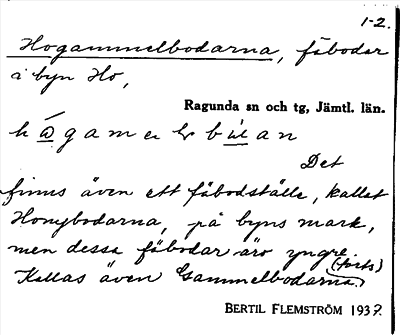 1-2.
Hogammelbodarna, fäbodar
i byn Ho,
Ragunda sn och tg, Jämtl. län.
Det
finns även ett fäbodställe, kallat
Honybodarna, på byns mark,
men dessa fäbodar äro yngre.
(forts)
Kallas även Gammelbodarna.
BERTIL FLEMSTRÖM 1939.